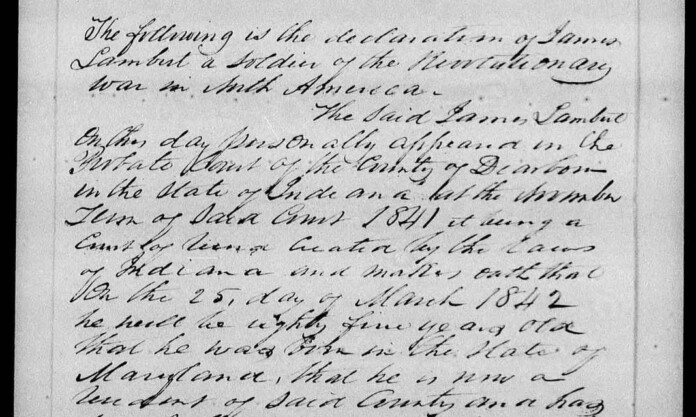 The following is the declaration of James
Lambert a soldier of the Revolutionary
War in North America.
The Said James Lambert
on this day personally appeared in the
Probate Court of the County of Dearborn
in the State of Indiana at the November
Term of Said Court 1841 it being a
Court of Record created by the Laws
of Indiana and makes oath that
On the 25, day of March 1842
he will be eighty five years old
that he was born in the State of
Maryland, that he is now a
resident of said County and has